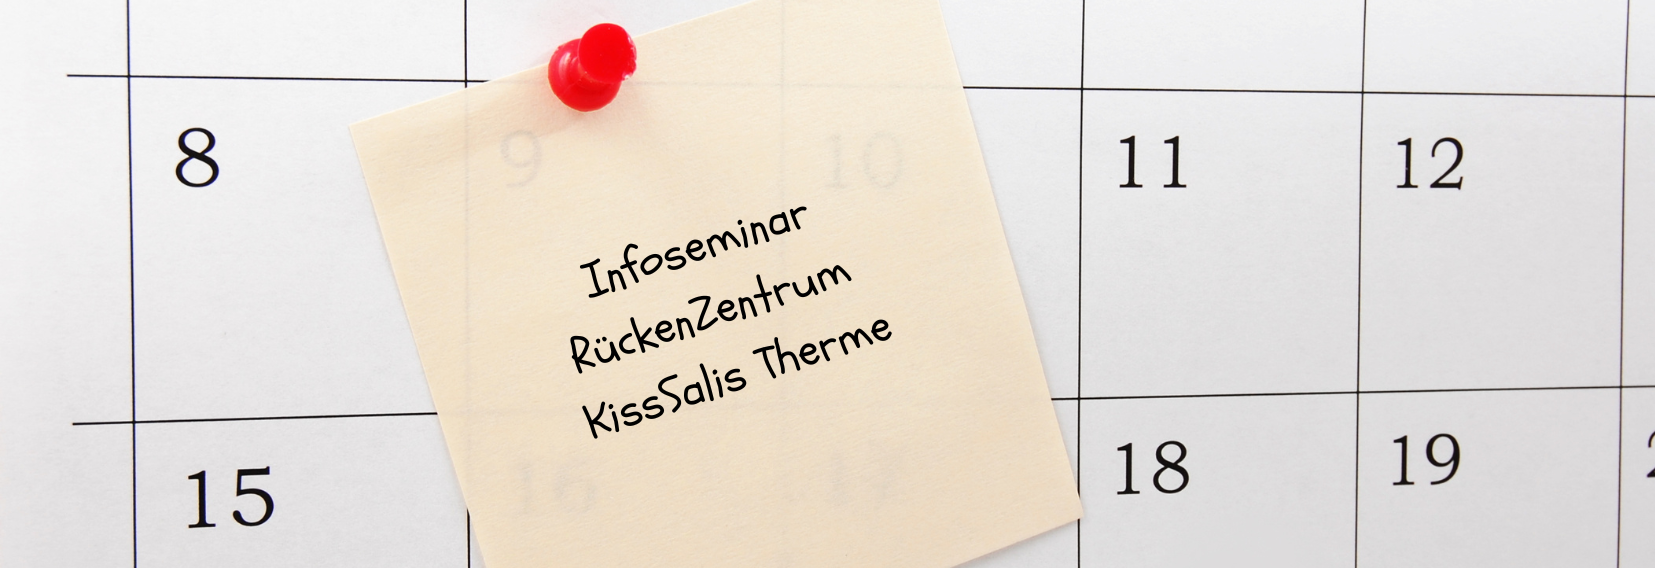 8 9 10 11 12
Infoseminar
RückenZentrum
KissSalis Therme
15 16 17 18 19